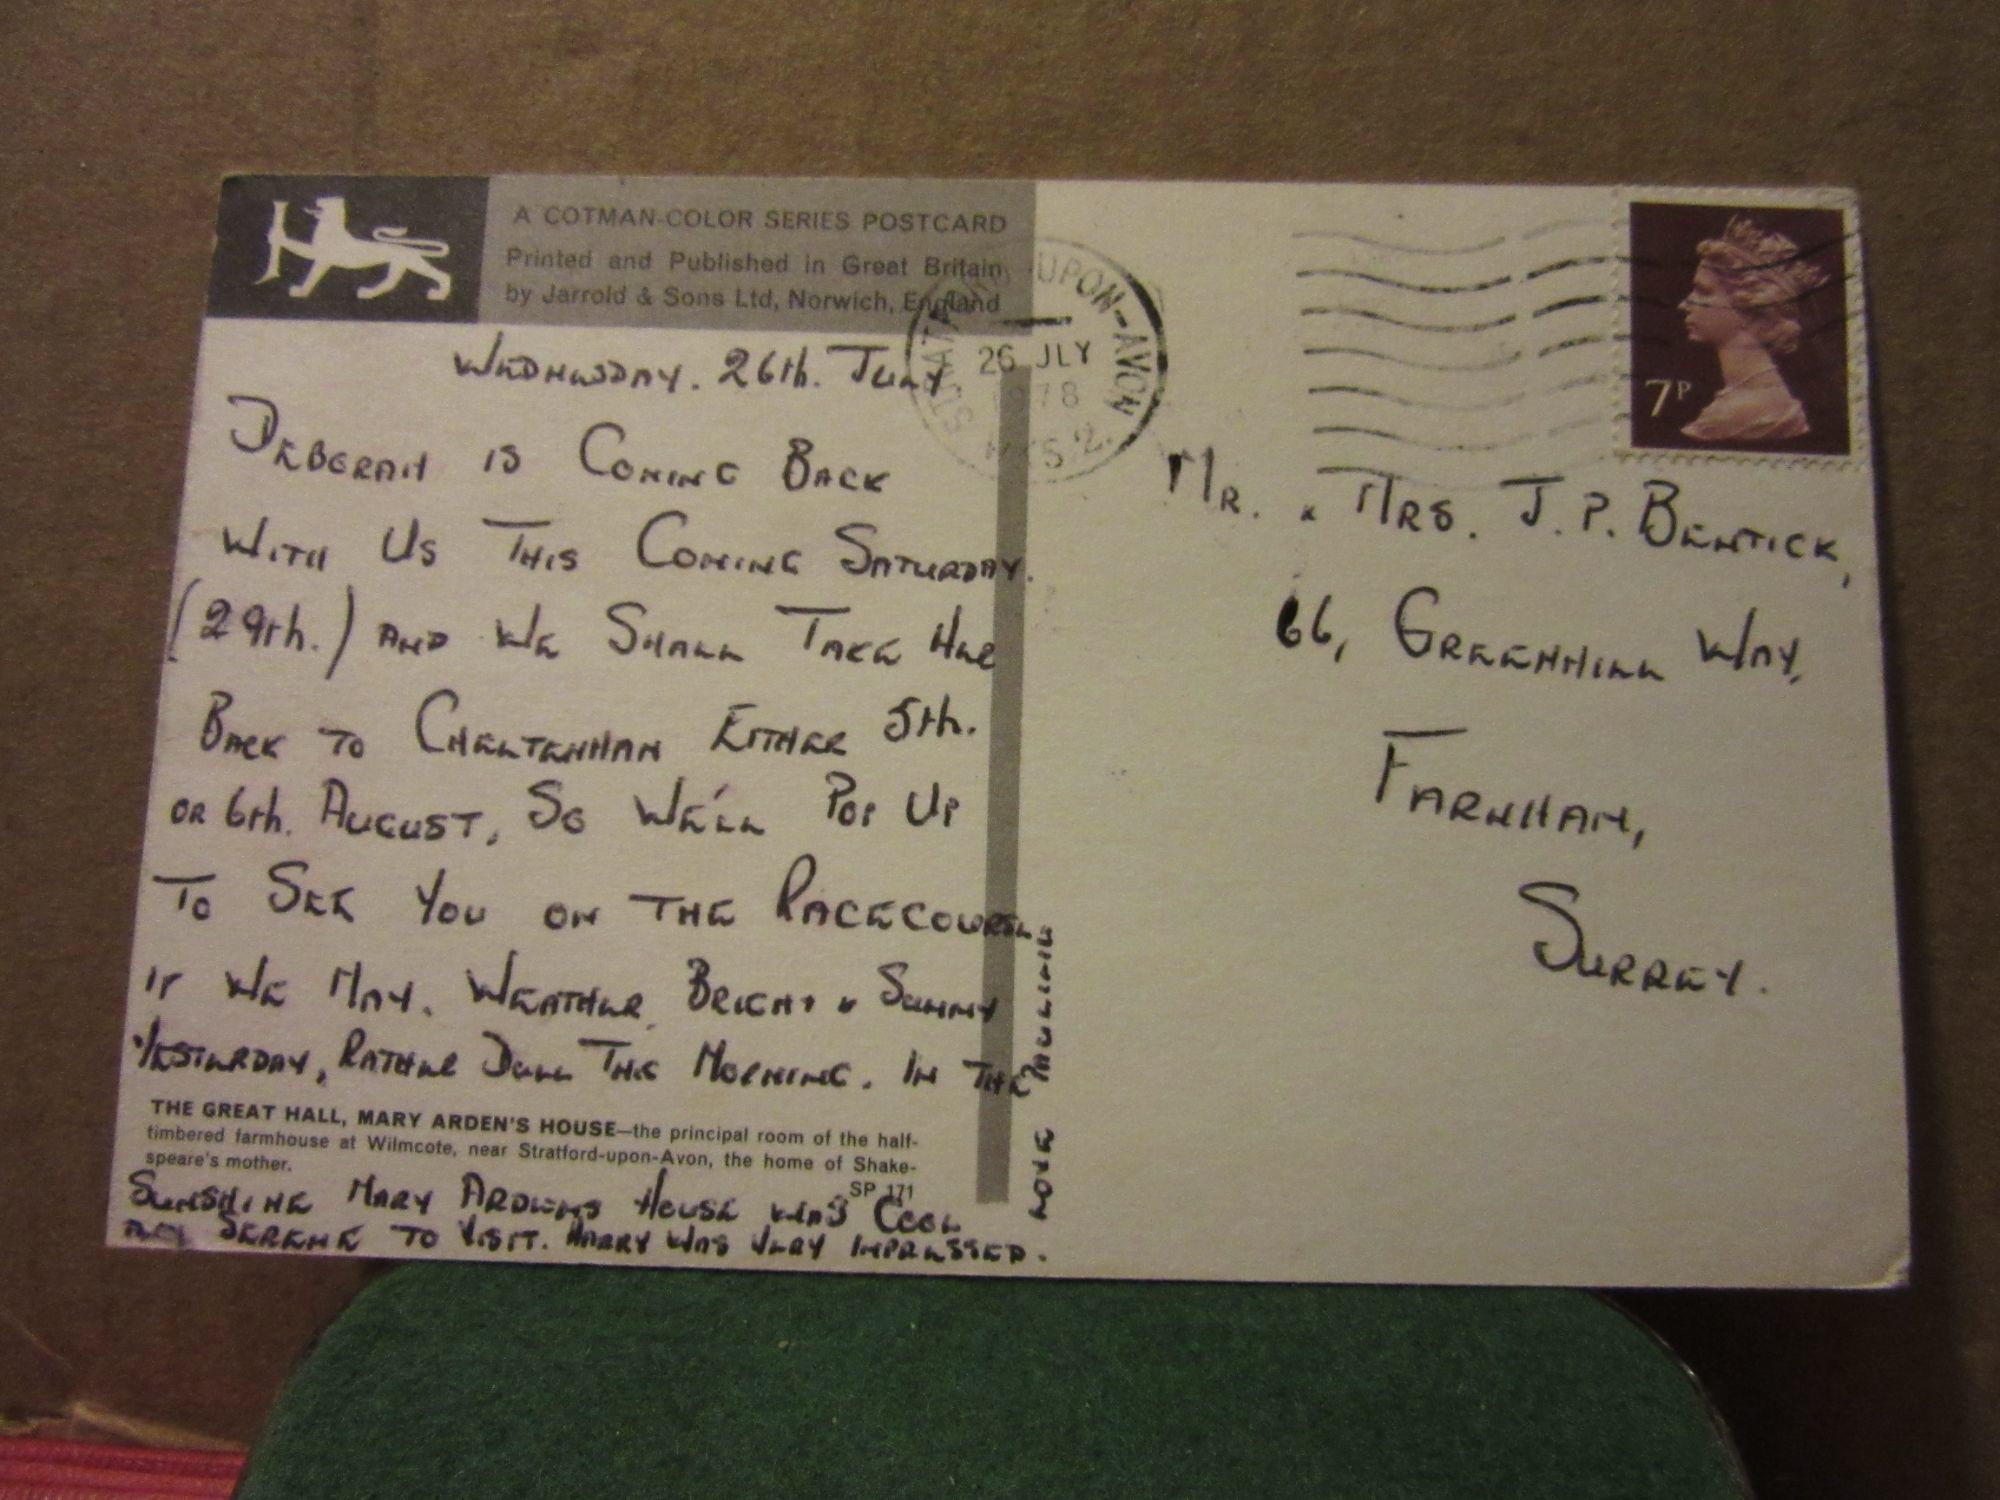 A COTMAN-COLOR SERIES POSTCARD
Printed and Published in Great Britain
by Jarrold & Sons Ltd, Norwich, England
WEDNESDAY. 26th. JULY
DEBORAH IS COMING BACK
WITH US THIS COMING SATURDAY.
(29th.) AND WE SHALL TAKE HER
BACK TO CHELTENHAM EITHER 5th.
OR 6th. AUGUST, SO WE'LL POP UP
TO SEE YOU ON THE RACECOURSE
IF WE MAY. WEATHER BRIGHT & SUNNY
YESTERDAY, RATHER DULL THIS MORNING. IN THE
THE GREAT HALL, MARY ARDEN'S HOUSE—the principal room of the half-
timbered farmhouse at Wilmcote, near Stratford-upon-Avon, the home of Shake-
speare's mother.
SP 171
SUNSHINE MARY ARDENS HOUSE WAS COOL
AND SERENE TO VISIT. HARRY WAS VERY IMPRESSED.
LOVE PAULINE
UPON-AVON
26 JLY
1978
7P
MR. & MRS. J. P. BENTICK,
66, GREENHILL WAY,
FARNHAM,
SURREY.